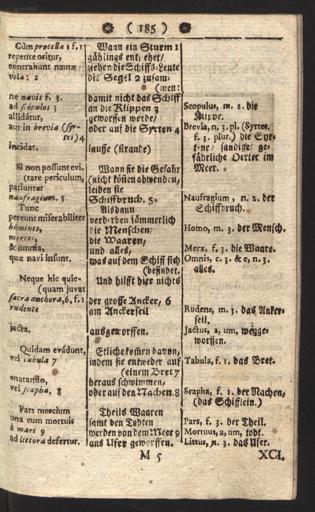 ( 185 )
Cùm procella 1 f. 1
repente oritur,
contrahunt nautæ
vela; 2
ne navis f. 3.
ad scopulos 3
allidatur,
aut in brevia (Syrtes) 4
incidat.
Si non possunt evitare periculum,
patiuntur
naufragium. 5
Tunc
pereunt miserabiliter
homines,
merces,
& omnia,
quæ navi insunt.
Neque hîc quicquam juvat
sacra anchora, 6, f. 1
rudente
jacta.
Quidam evadunt,
vel tabula 7
enatantes,
vel scapha, 8
Pars mercium
una cum mortuis
à mari 9
ad littora defertur.
Wann ein Sturm 1
gählings entstehet/
ziehen die Schiffs-Leute
die Segel 2 zusam-
(men:
damit nicht das Schiff
an die Klippen 3
geworffen werde/
oder auf die Syrten 4
lauffe (strande)
Wann sie die Gefahr
(nicht können abwenden,
leiden sie
Schiffbruch. 5.
Alsdann
verderben jämmerlich
die Menschen
die Waaren,
und alles,
was auf dem Schiff sich
(befindet.
Und hilfft hier nichts
der grosse Ancker, 6
am Anckerseil
ausgeworffen.
Etliche können davon,
indem sie entweder auf
(einem Bret 7
heraus schwimmen,
oder auf den Nachen. 8
Theils Waaren
samt den Todten
werden von dem Meer 9
ans Ufer geworffen.
Scopulus, m. 2. die
Klippe.
Brevia, n. 3. pl. (Syrtes,
f. 3. plur.) die Syrten / sandige / gefährliche Oerter im
Meer.
Naufragium, n. 2. der
Schiffbruch.
Homo, m. 3. der Mensch.
Merx, f. 3. die Waare.
Omnis, c. 3. & e, n. 3.
alles.
Rudens, m. 3. das Ankerseil.
Jactus, a, um, weggeworffen.
Tabula, f. 1. das Bret.
Scapha, f. 1. der Nachen,
(das Schifflein.)
Pars, f. 3. der Theil.
Mortuus, a, um, todt.
Littus, n. 3. das Ufer.
M 5
XCI.